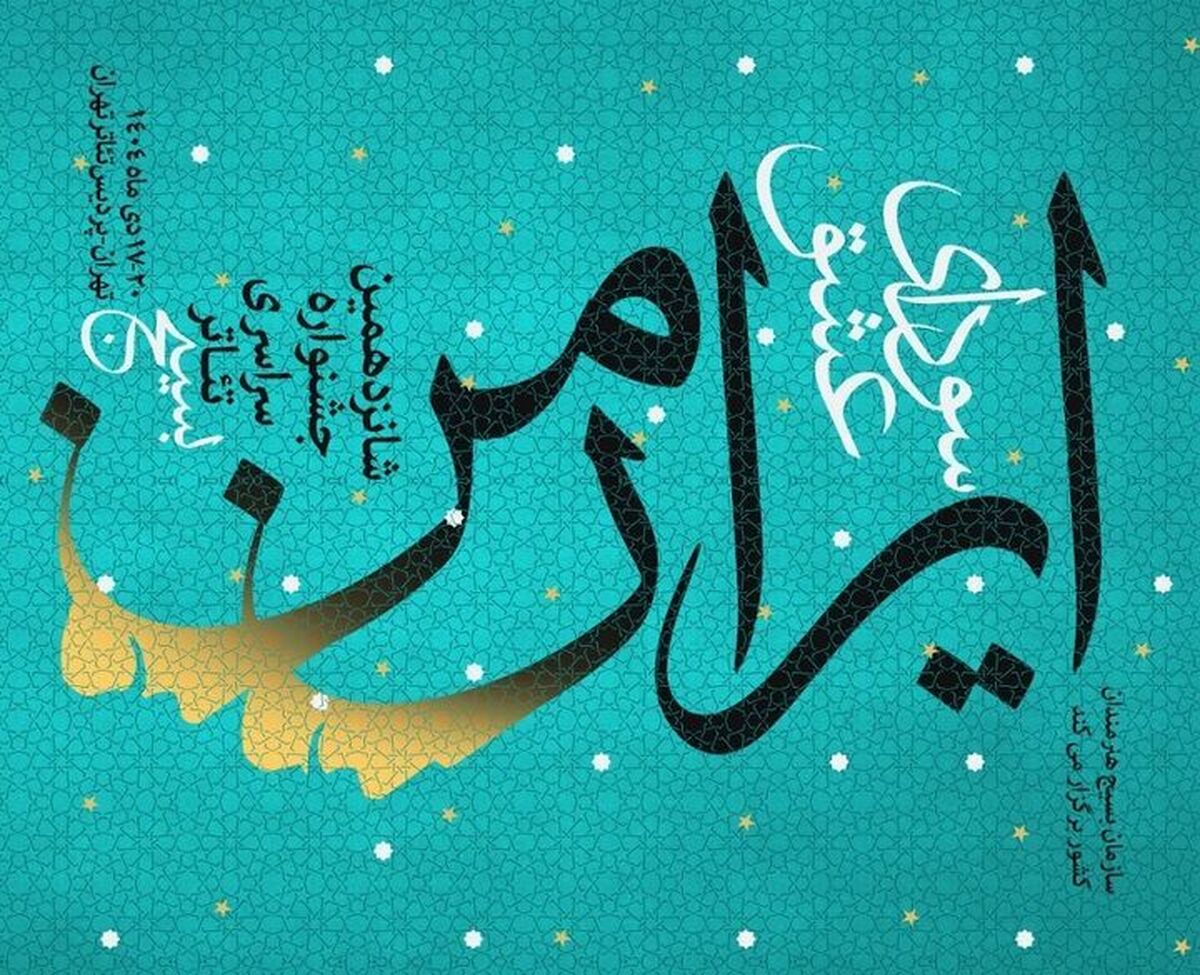 ایران من
سودای
عشق
شانزدهمین
جشنواره
سراسری
تئاتر
بسیج
۱۷-۲۰ دی ماه ۱۴۰۴
تهران-پردیس تئاتر تهران
سازمان بسیج هنرمندان
کشور برگزار می کند